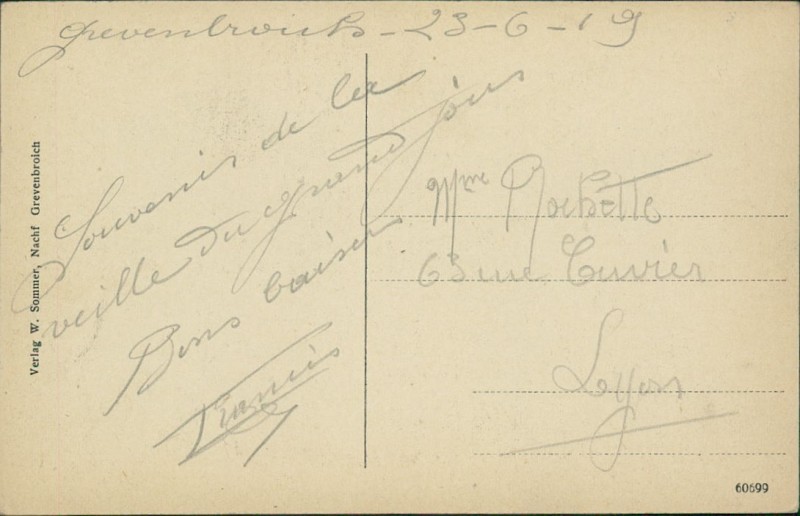 Grevenbroich - 23-6-19
Souvenir de la
veille du grand jour
Bons baisers
Francis
Mme Rochette
63 rue Cuvier
Lyon
Verlag W. Sommer, Nachf Grevenbroich
60699